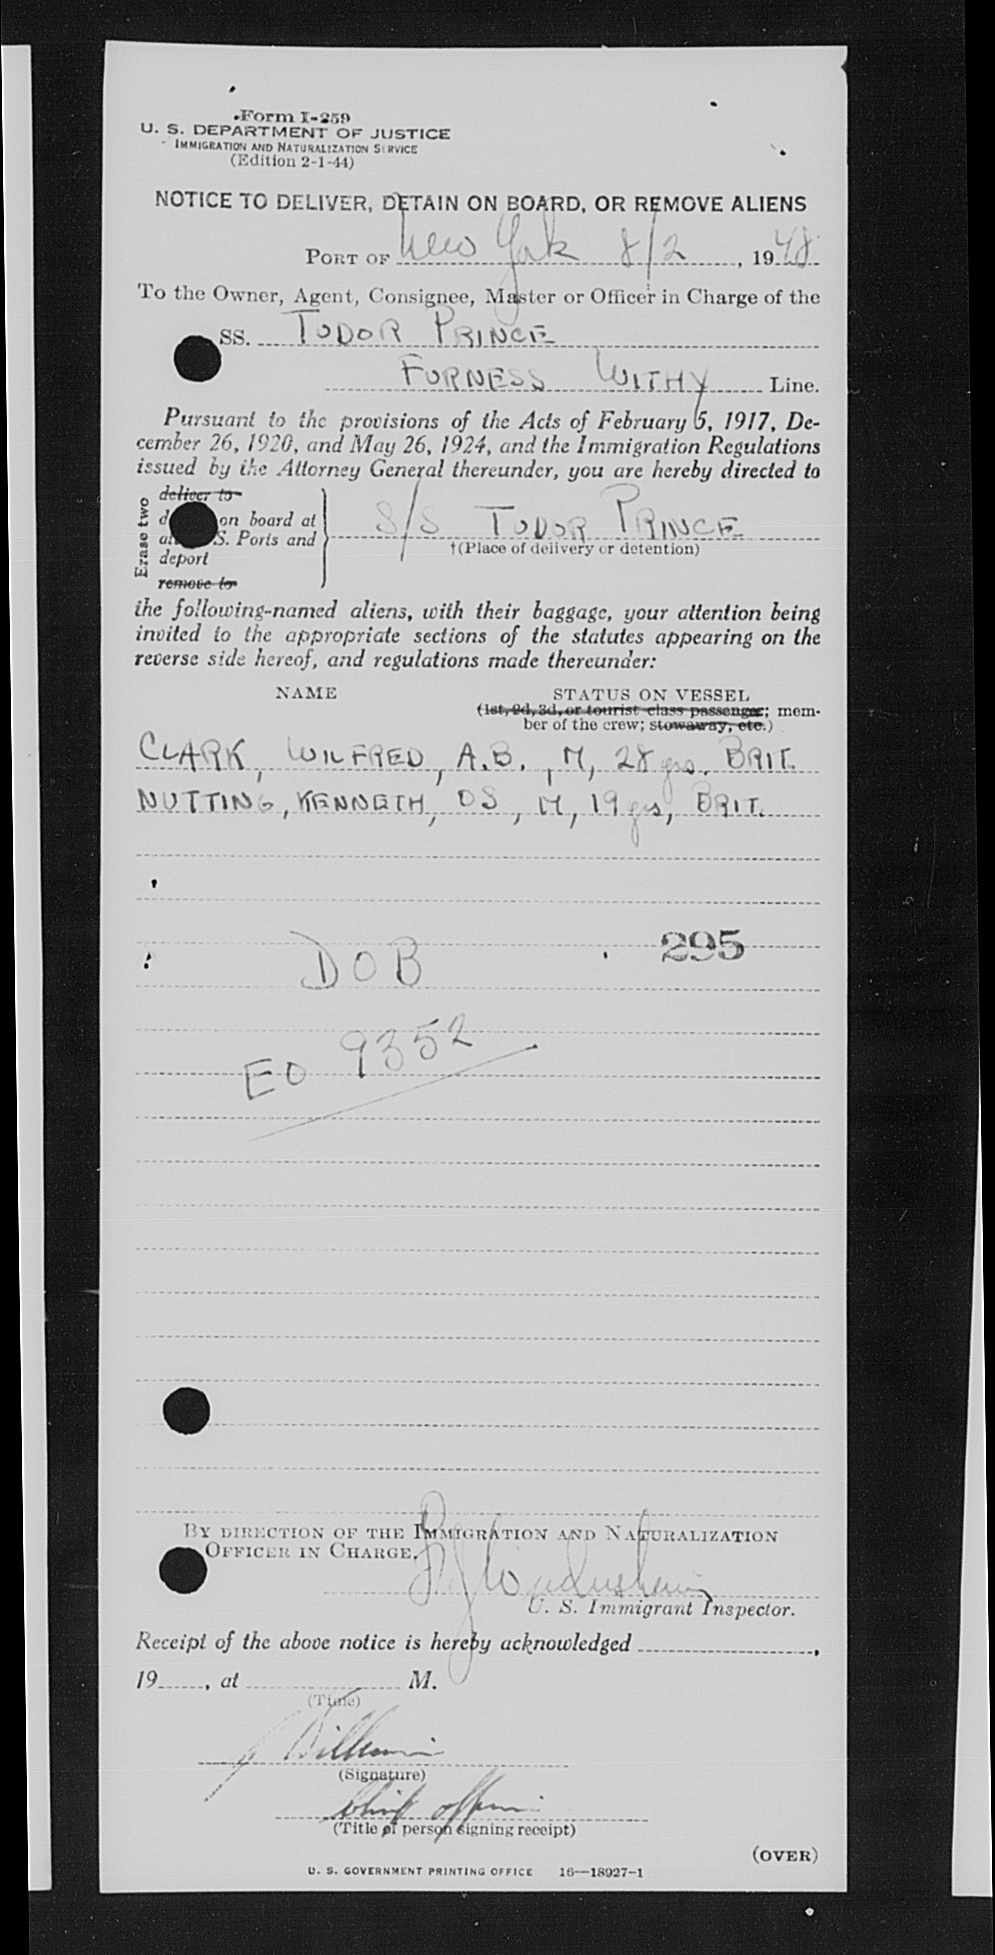 Form I-259
U. S. DEPARTMENT OF JUSTICE
IMMIGRATION AND NATURALIZATION SERVICE
(Edition 2-1-44)
NOTICE TO DELIVER, DETAIN ON BOARD, OR REMOVE ALIENS
PORT OF New York 8/2, 1948
To the Owner, Agent, Consignee, Master or Officer in Charge of the
SS. TUDOR PRINCE
FURNESS WITHY Line.
Pursuant to the provisions of the Acts of February 5, 1917, De-
cember 26, 1920, and May 26, 1924, and the Immigration Regulations
issued by the Attorney General thereunder, you are hereby directed to
Erase two
deliver to
on board at
S. Ports and
deport
remove to
S/S TUDOR PRINCE
†(Place of delivery or detention)
the following-named aliens, with their baggage, your attention being
invited to the appropriate sections of the statutes appearing on the
reverse side hereof, and regulations made thereunder:
NAME STATUS ON VESSEL
(1st, 2d, 3d, or tourist class passenger; mem-
ber of the crew; stowaway, etc.)
CLARK, WILFRED, A.B., M, 28 yrs. BRIT.
NUTTING, KENNETH, OS, M, 19 yrs, BRIT.
295
DOB
EO 9352
BY DIRECTION OF THE IMMIGRATION AND NATURALIZATION
OFFICER IN CHARGE.
U. S. Immigrant Inspector.
Receipt of the above notice is hereby acknowledged ,
19 , at M.
(Time)
(Signature)
Chief officer
(Title of person signing receipt)
(OVER)
U. S. GOVERNMENT PRINTING OFFICE 16—18927-1